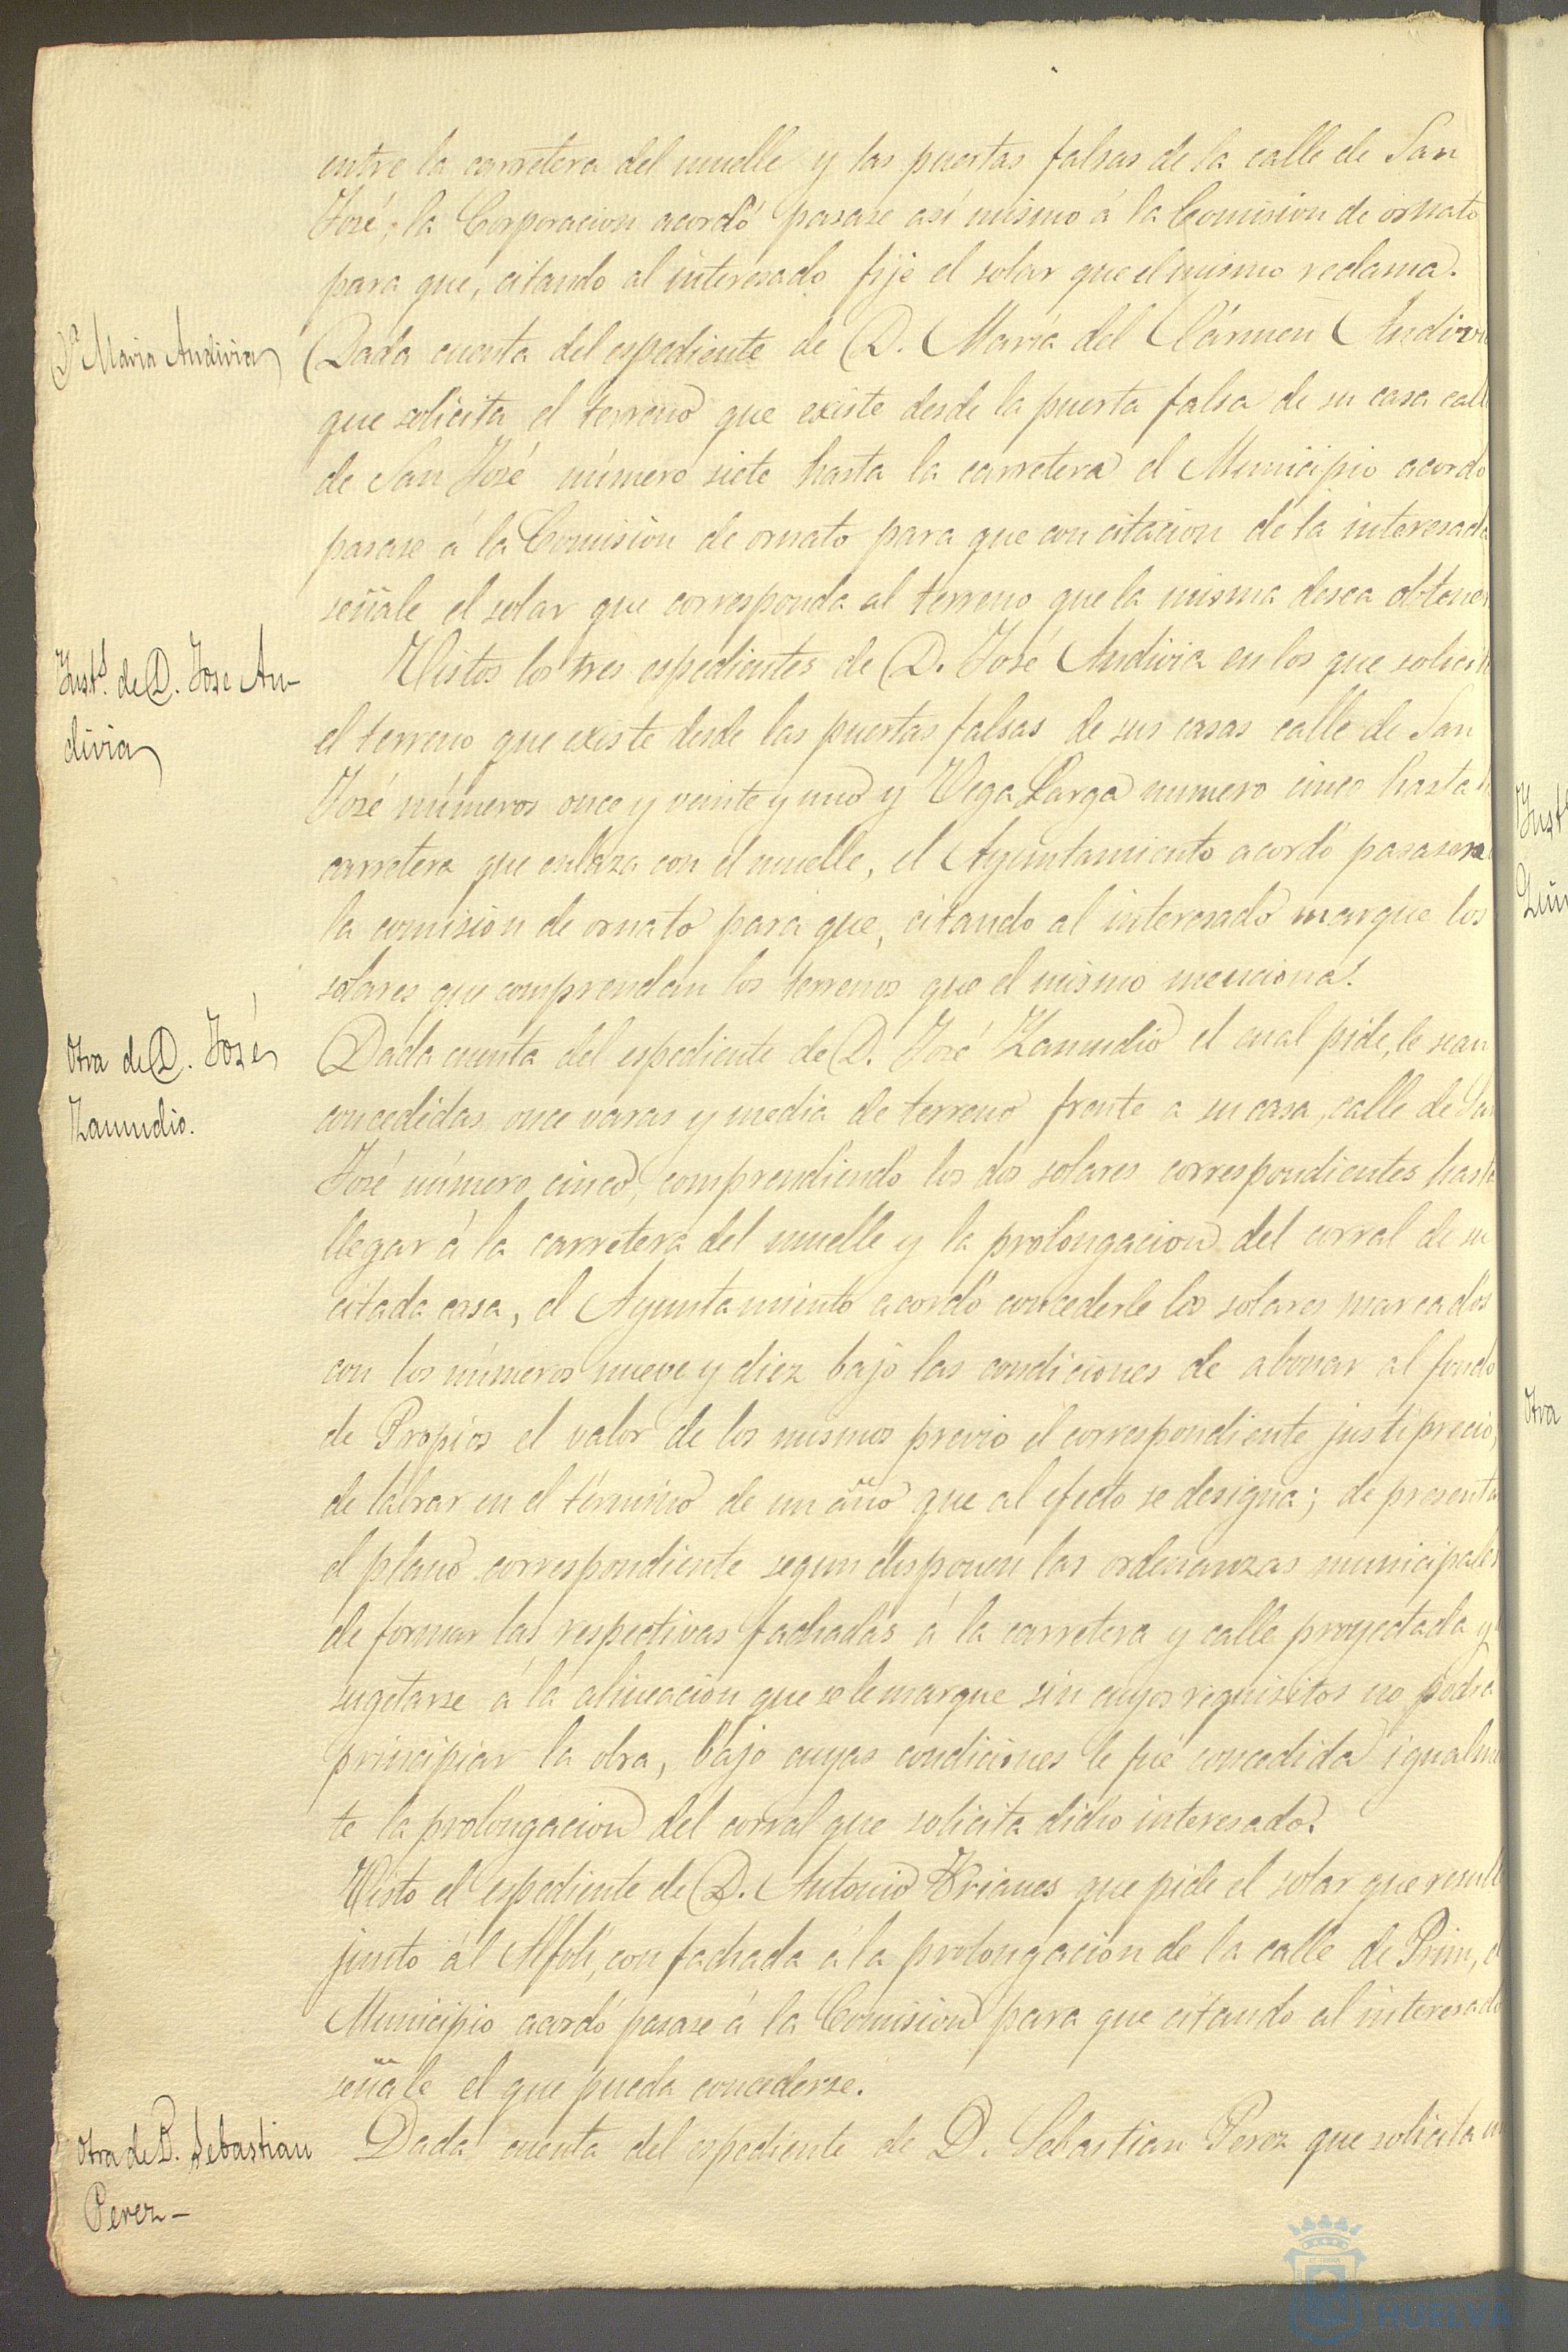 entre la carretera del muelle y las puertas falsas de la calle de San
José, la Corporacion acordó pasase así mismo á la Comision de ornato
para que, citando al interesado fije el solar que el mismo reclama.
Dª Maria Andivia
Dada cuenta del espediente de D. María del Cármen Andivi
que solicita el terreno que existe desde la puerta falsa de su casa call
de San José número siete hasta la carretera el Municipio acordo
pasase á la Comision de ornato para que con citacion de la interesada
señale el solar que corresponda al terreno que la misma desea obtener
Insts. de D. Jose An-
divia
Vistos los tres espedientes de D. José Andivia en los que solicit
el terreno que existe desde las puertas falsas de sus casas calle de San
José números once y veinte y uno y Vega Larga numero cinco hasta
carretera que enlaza con el muelle, el Ayuntamiento acordó pasasen a
la comision de ornato para que, citando al interesado marque los
solares que comprendan los terrenos que el mismo menciona.
Otra de D. José
Zamudio.
Dada cuenta del espediente de D. José Zamudio el cual pide, le sean
concedidas once varas y media de terreno frente a su casa, calle de San
José número cinco, comprendiendo los dos solares correspondientes hasta
llegar á la carretera del muelle y la prolongacion del corral de su
citada casa, el Ayuntamiento acordó concederle los solares marcados
con los números nueve y diez bajo las condiciones de abonar al fondo
de Propios el valor de los mismos previo el correspondiente justiprecio,
de labrar en el término de un año que al efecto se designa; de presentar
el plano correspondiente segun disponen las ordenanzas municipales
de formar las respectivas fachadas á la carretera y calle proyectada y
sugetarse á la alineacion que se le marque sin cuyos requisitos no podra
principiar la obra, bajo cuyas condiciones le fué concedida igualmen
te la prolongacion del corral que solicita dicho interesado.
Visto el espediente de D. Antonio Krianes que pide el solar que result
junto al Alfolí, con fachada á la prolongacion de la calle de Prim, el
Municipio acordó pasase á la Comision para que citando al interesado
señale el que pueda concederse.
Otra de D. Sebastian
Perez-
Dada cuenta del espediente de D. Sebastian Perez que solicita un
Inst
Otra
HUELVA